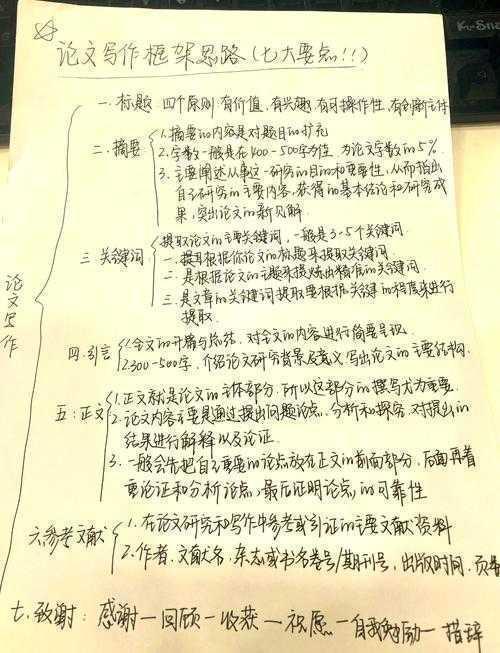 论文写作框架思路(七大要点!!!)
论文写作
一.标题 四个原则:有价值,有兴趣,有可操作性,有创新立体
二.摘要
1.摘要的内容是对题目的扩充
2.字数一般是在400-500字为值,为论文字数的5%.
3.主要阐述从事这一研究的目的和重要性,从而指出
自己研究的主要内容,获得的基本结论和研究成
果,突出论文的新见解.
三 关键词
提取论文的主要关键词,一般是3-5个关键词.
一.提取根据你论文的标题来提取关键词.
二.是根据论文的主题来提炼出精准的关键词.
三.是文章的关键词提取要根据关键的程度来进行
提取.
四.引言
1.全文的开篇与总结,对全文的内容进行简要呈现.
2.300-500字,介绍论文研究背景及意义,写出论文的主要结构.
五:正文
1.正文就是论文的主体部分,所以这部分的撰写尤为重要.
2.论文内容主要是通过提出问题论点,分析和探究,对提出的
结果进行解释以及论证.
3.一般会先把自己主要的论点放在正文的前面部分,后面再着
重论证和分析论点,最后证明论点的可靠性
六.参考文献
1.在论文研究和写作中参考或引证的主要文献资料
2.作者,文献名,杂志或书名卷号/期刊号,出版时间,页
七.致谢:感谢一回顾一收获一祝愿一自我勉励一措辞